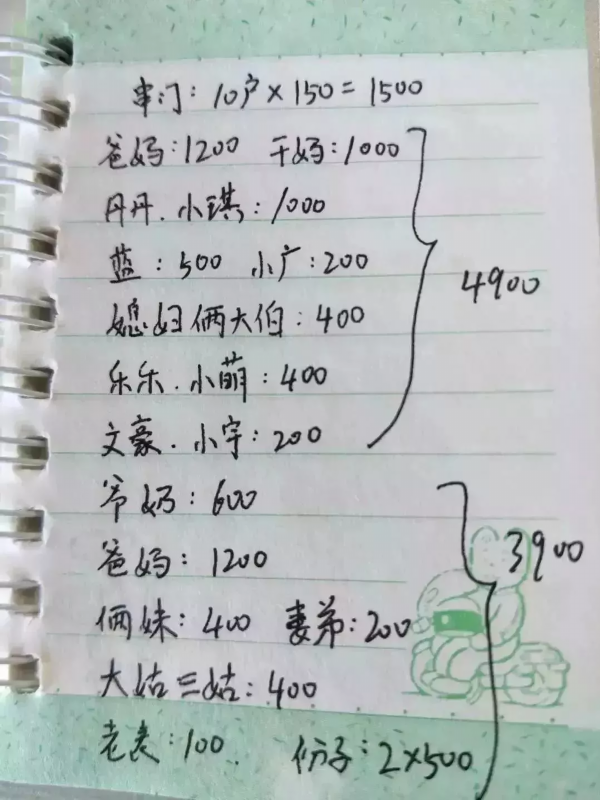 串门:10户×150=1500
爸妈:1200 干妈:1000
丹丹.小琪:1000
蓝:500 小广:200
4900
媳妇俩大伯:400
乐乐.小萌:400
文豪.小宇:200
爷奶:600
3900
爸妈:1200
俩妹:400 妻弟:200
大姑三姑:400
老表:100. 份子:2×500